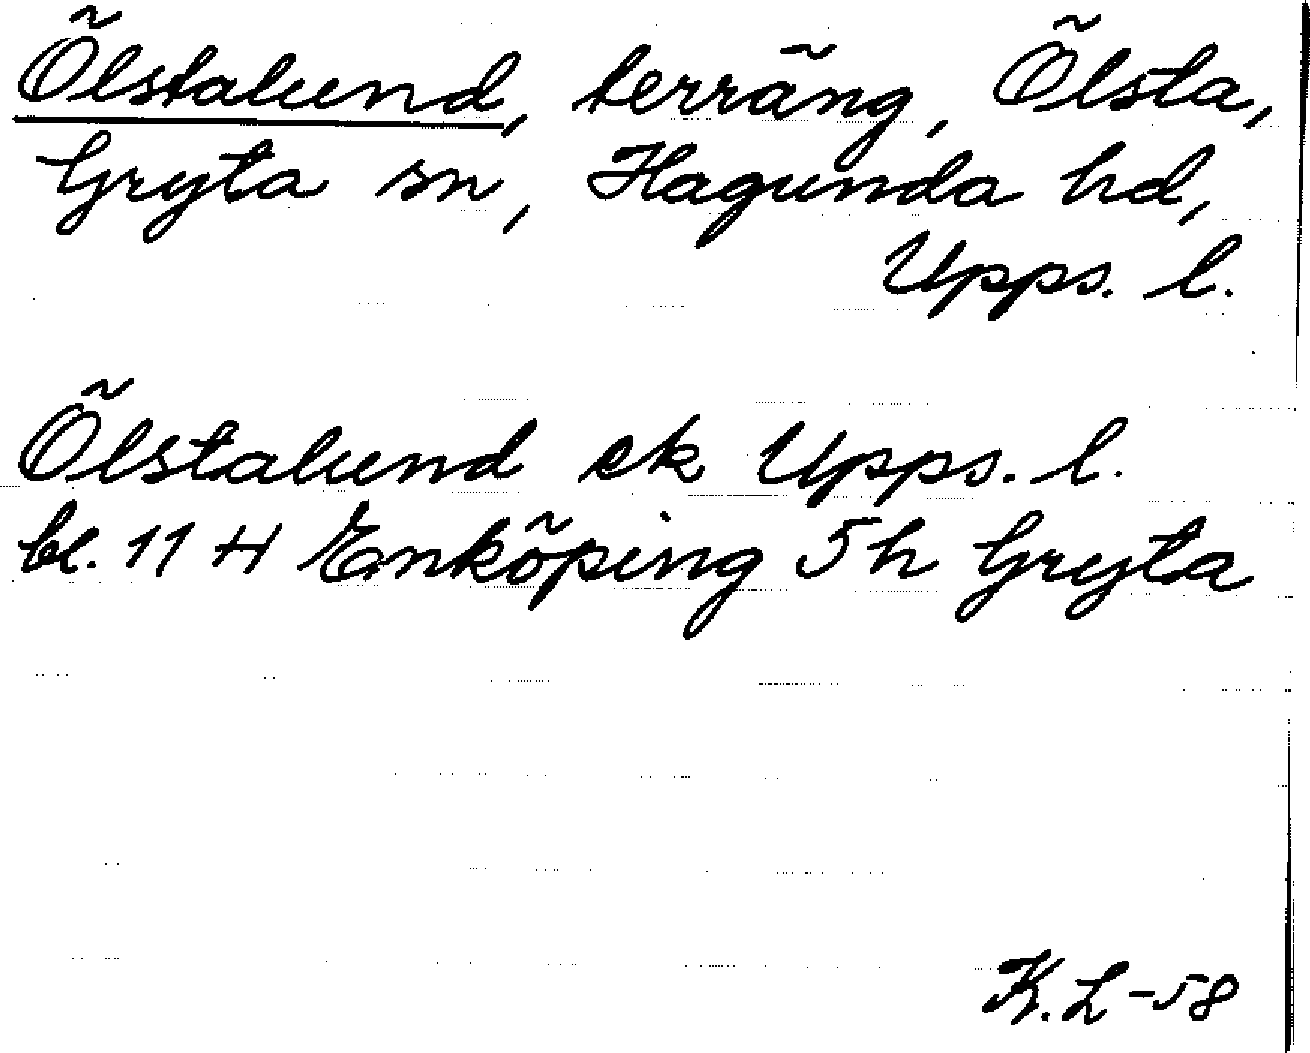 Ölstalund, terräng, Ölsta,
Gryta sn, Hagunda hd,
Upps. l.
Ölstalund ek Upps. l.
bl. 11 H Enköping 5h Gryta
K. L -58